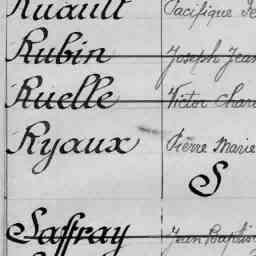 Ruault Pacifique
Rubin Joseph Jean
Ruelle Victor Char
Ryaux Pierre Marie
S
Saffray Jean Baptis